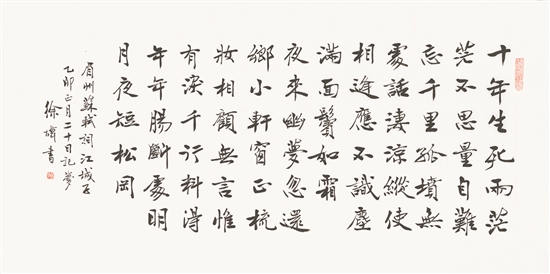 十年生死兩茫
茫不思量自難
忘千里孤墳無
處話淒涼縱使
相逢應不識塵
滿面鬢如霜
夜來幽夢忽還
鄉小軒窗正梳
妝相顧無言惟
有淚千行料得
年年腸斷處明
月夜短松岡
眉州蘇軾詞江城子
乙卯正月二十日記夢
徐書